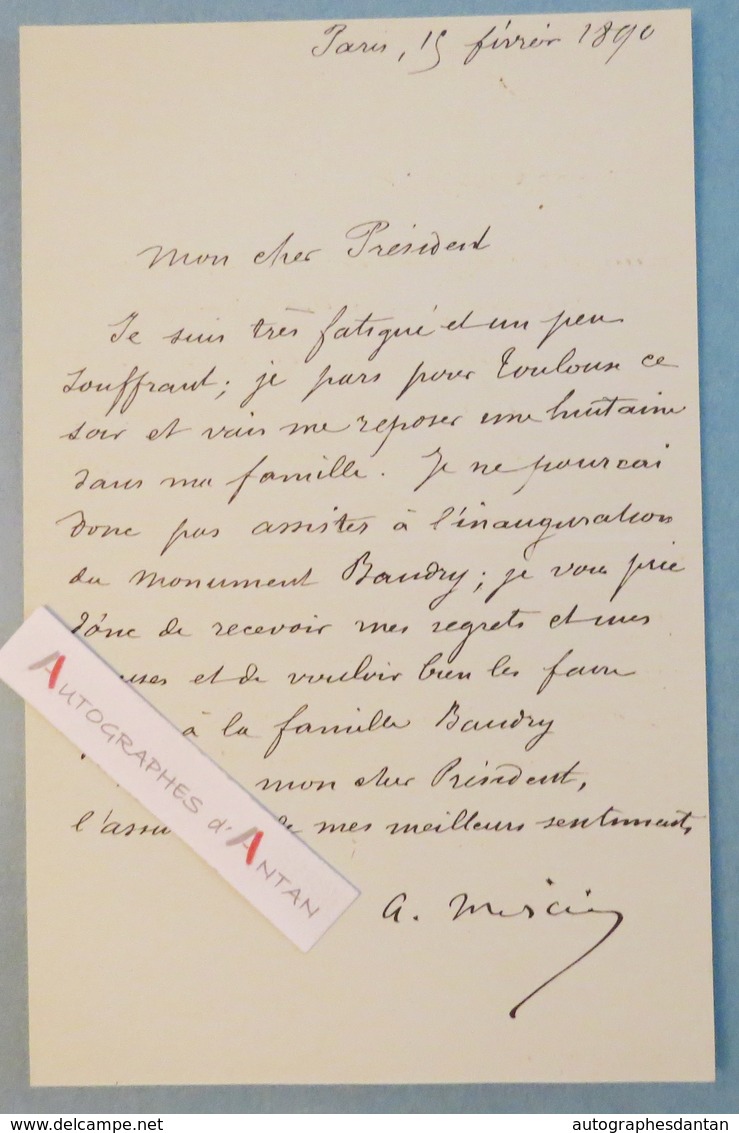 Paris, 15 février 1890
Mon cher Président
Je suis très fatigué et un peu
souffrant; je pars pour Toulouse ce
soir et vais me reposer une huitaine
dans ma famille. Je ne pourrai
donc pas assister à l'inauguration
du monument Baudry; je vous prie
donc de recevoir mes regrets et mes
et de vouloir bien les faire
à la famille Baudry
mon cher Président,
l'assu de mes meilleurs sentiments
A. Mercié
AUTOGRAPHES d'ANTAN
www.delcampe.net
autographesdantan